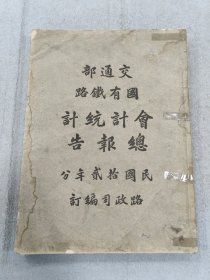 交通部
國有鐵路
會計統計
總報告
民國拾貳年分
路政司編訂